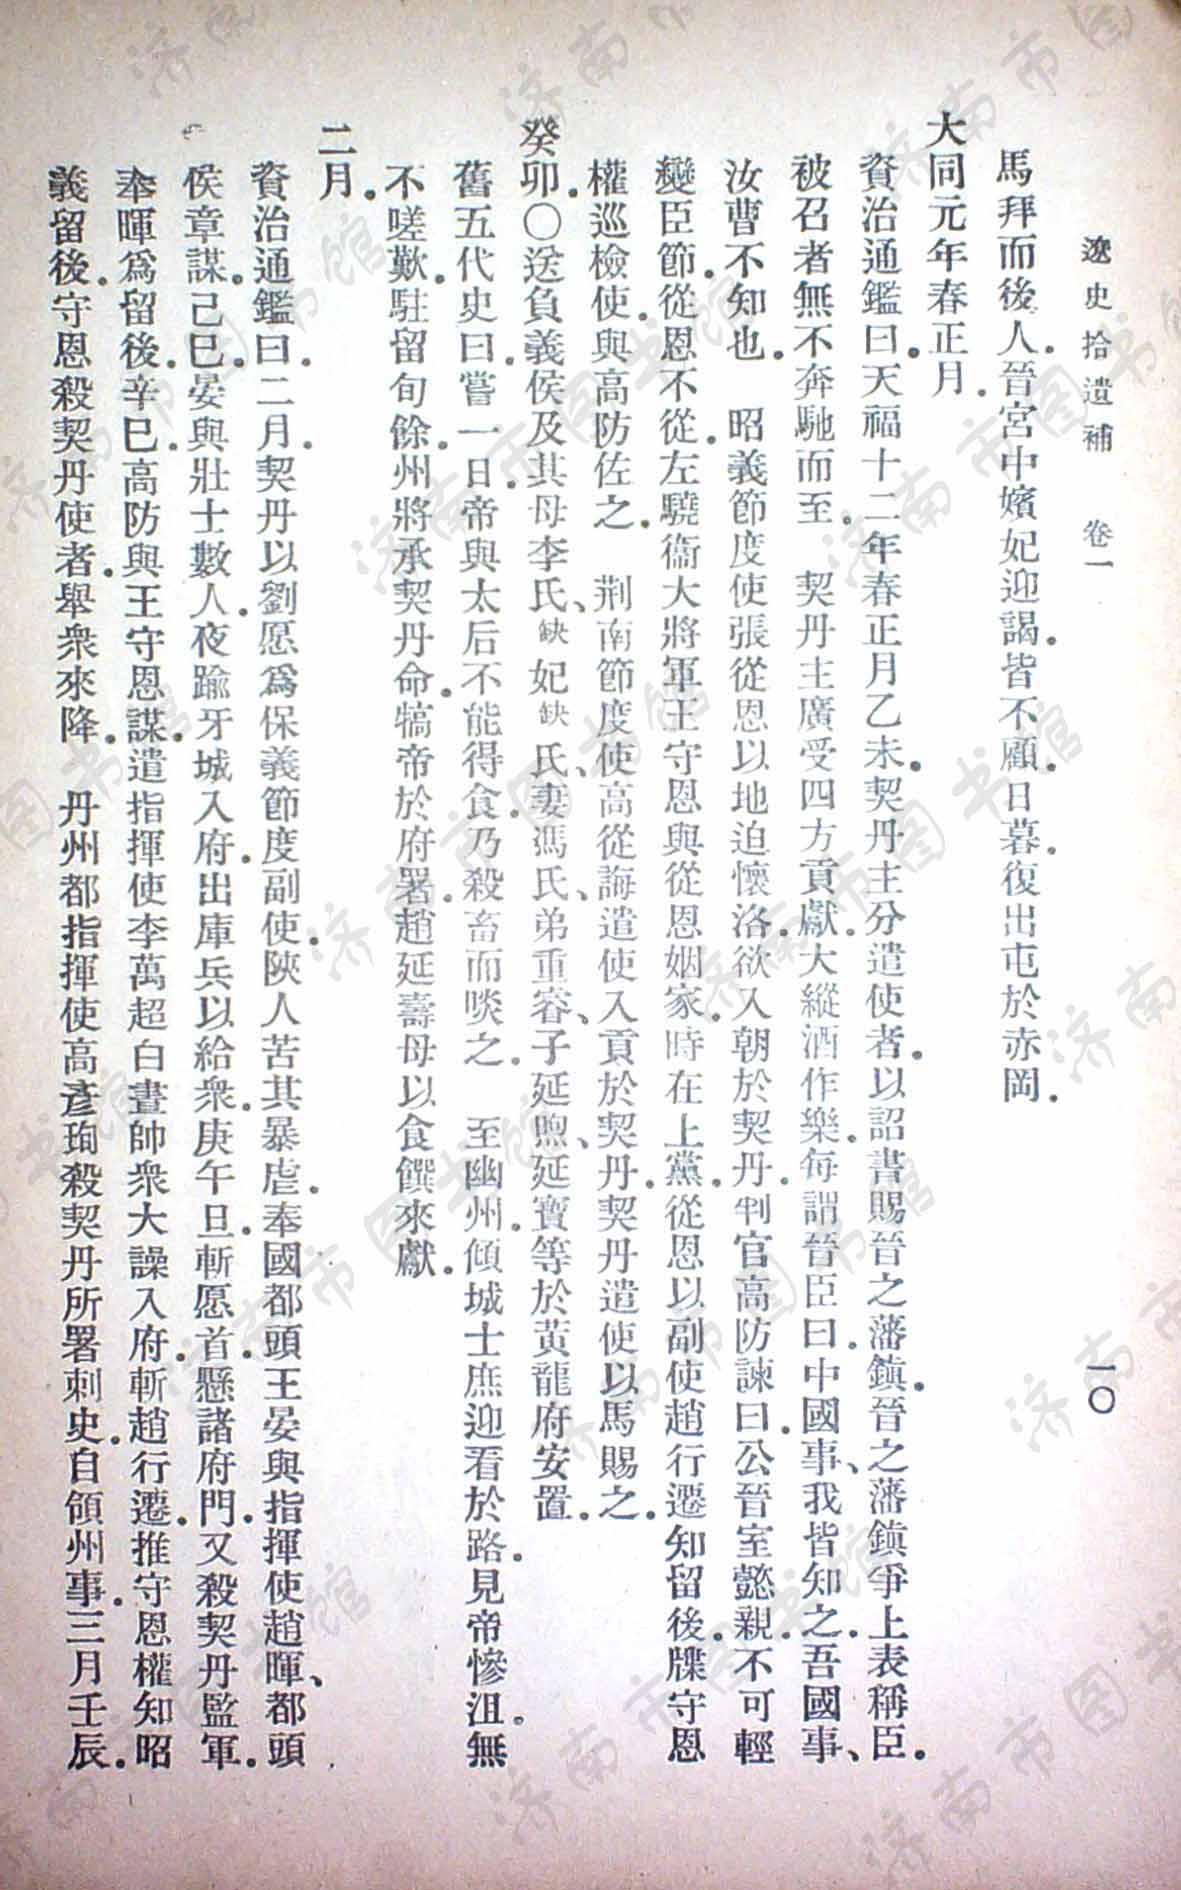 遼史拾遺補　卷一　一〇
馬拜而後人。晉宮中嬪妃迎謁。皆不顧。日暮。復出屯於赤岡。
大同元年春正月。
資治通鑑曰。天福十二年春正月乙未。契丹主分遣使者。以詔書賜晉之藩鎮。晉之藩鎮爭上表稱臣。
被召者無不奔馳而至。　契丹主廣受四方貢獻。大縱酒作樂。每謂晉臣曰。中國事、我皆知之。吾國事、
汝曹不知也。　昭義節度使張從恩以地迫懷洛。欲入朝於契丹。判官高防諫曰。公晉室懿親。不可輕
變臣節。從恩不從。左驍衞大將軍王守恩與從恩姻家。時在上黨。從恩以副使趙行遷知留後。牒守恩
權巡檢使。與高防佐之。　荆南節度使高從誨遣使入貢於契丹。契丹遣使以馬賜之。
癸卯。〇送負義侯及其母李氏、缺妃缺氏、妻馮氏、弟重睿、子延煦、延寶等於黃龍府安置。
舊五代史曰。嘗一日。帝與太后不能得食。乃殺畜而啖之。　至幽州。傾城士庶迎看於路。見帝慘沮。無
不嗟歎。駐留旬餘。州將承契丹命。犒帝於府署。趙延壽母以食饌來獻。
二月。
資治通鑑曰。二月。契丹以劉愿爲保義節度副使。陝人苦其暴虐。奉國都頭王晏與指揮使趙暉、都頭
侯章謀。己巳。晏與壯士數人。夜踰牙城入府。出庫兵以給衆。庚午旦。斬愿首。懸諸府門。又殺契丹監軍。
奉暉爲留後。辛巳。高防與王守恩謀。遣指揮使李萬超白晝帥衆大譟入府。斬趙行遷。推守恩權知昭
義留後。守恩殺契丹使者。舉衆來降。　丹州都指揮使高彥珣殺契丹所署刺史。自領州事。三月壬辰。